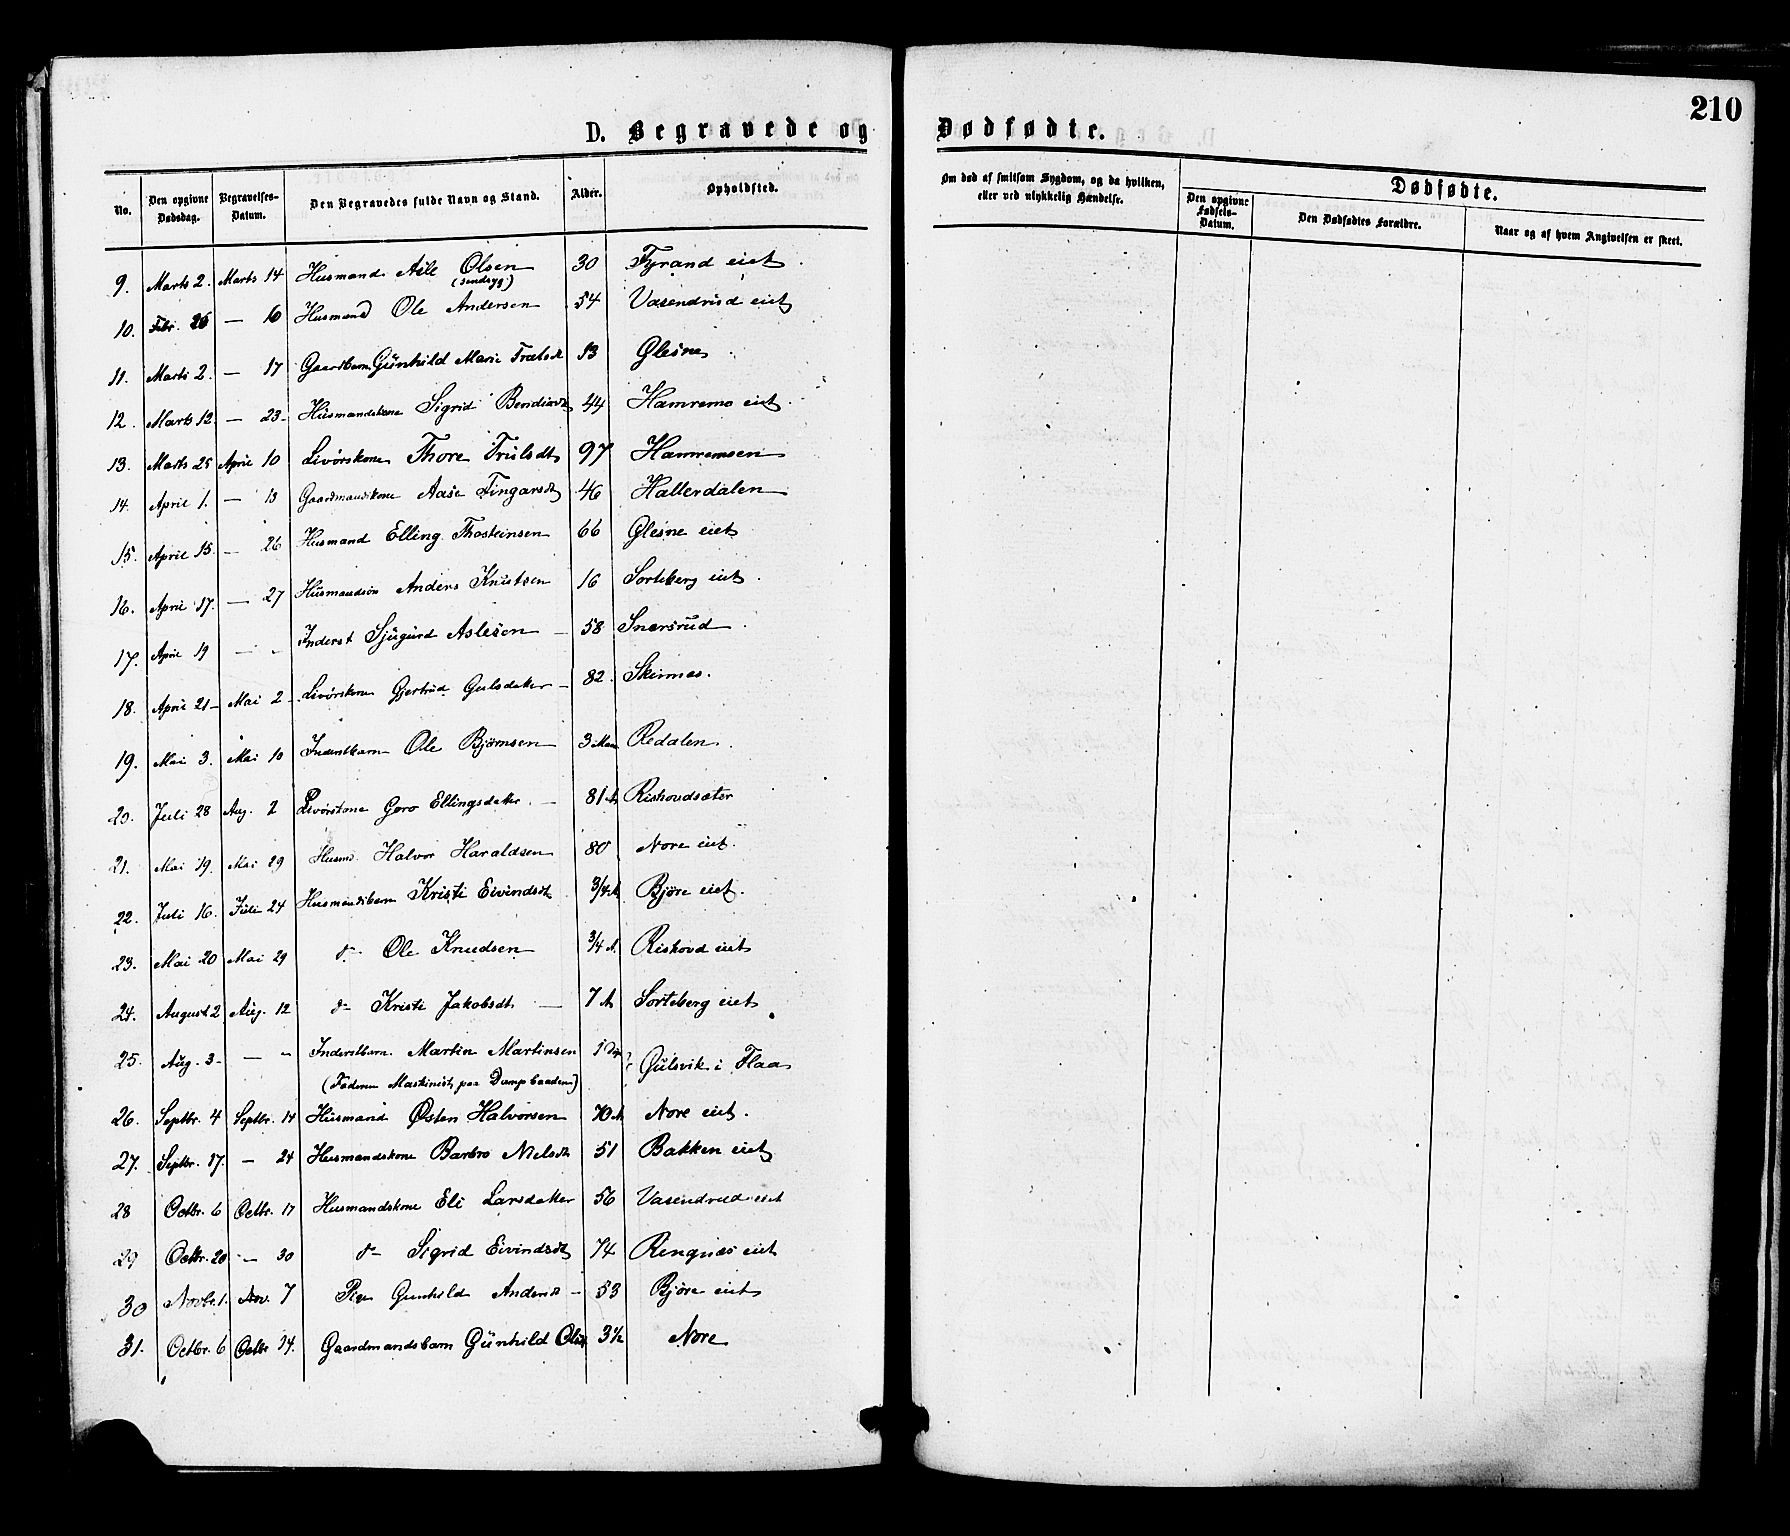 210
D. Begravede og Dødfødte.
No. Den opgivne Dødsdag. Begravelses-Datum. Den Begravedes fulde Navn og Stand. Alder. Opholdsted. Om død af smitsom Sygdom, og da hvilken, eller ved ulykkelig Hændelse. Dødfødte.
Den opgivne Fødsels-Datum. Den Dødfødtes Forældre. Naar og af hvem Angivelsen er skeet.
9. Marts 2. Marts 14 Husmand Asle Olsen 30 Fyrand eiet
(sindsyg)
10. Febr. 26 — 16 Husmand Ole Andersen 54 Vasendrud eiet
11. Marts 2. — 17 Gaardbarn Gunhild Marie 13 Glesne
12. Marts 12. — 23 Husmandskone Sigrid 44 Hamremo eiet
13. Marts 25 April 10 Livørskone Thore Trulsdt 97 Hamremoen
14. April 1. — 13 Gaardmandskone Aase Fingarsdt 46 Hallerdalen
15. April 15. — 26 Husmand Elling Thosteinsen 66 Glesne eiet
16. April 17. — 27 Husmandssøn Anders Knutsen 16 Sorteberg eiet
17. April 19 — - Inderst Sjugurd Aslesen — 58 Snersrud
18. April 21 Mai 2 Livørskone Gjertrud Gulsdatter — 82. Skinnes.
19. Mai 3. Mai 10 Inderstbarn Ole Bjørnsen 3 Redalen
20. Juli 28 Aug. 2 Livørskone Goro Ellingsdatter — 81 A Rishovdsæter
21. Mai 19. Mai 29 Husmd. Halvor Haraldsen 80 Nore eiet.
22. Juli 16. Juli 24 Husmandsbarn Kristi Eivindsdt 3/4 A Bjøre eiet.
23. Mai 20 Mai 29 do Ole Knudsen 3/4 A. Rishovd eiet
24. August 2 Aug. 12 do Kristi Jakobsdt — 7 A Sorteberg eiet
25. Aug. 3 — - Inderstbarn Martin Martinsen 1 Gulsvik i Flaa
(Faderen Maskinist paa Dampbaaden)
26. Septbr. 4 Septbr. 14 Husmand Østen Halvorsen 70 A Nore eiet.
27. Septbr. 17. — 24 Husmandskone Barbro Nielsdt 51 Bakken eiet
28 Octbr. 6 Octbr. 17 Husmandskone Eli Larsdatter 56 Vasendrud eiet
29 Octbr. 20 — 30 do Sigrid Eivindsdt 74 Rengnes eiet
30 Novbr. 1. Nov. 7 Pige Gunhild Andersdt — 53 Bjøre eiet
31. Octbr. 6 Octbr 14. Gaardmandsbarn Gunhild Olsdt 3½ Nore